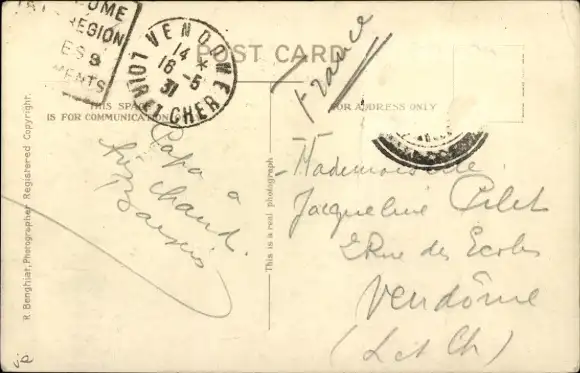 OME
REGION
ES 3
MENTS
VENDOME
14 *
16 - 5
31
LOIR ET CHER
POST CARD
France
THIS SPACE
IS FOR COMMUNICATION
FOR ADDRESS ONLY
Papa a
chaud.
Baisers
Mademoiselle
Jacqueline Pilet
2 Rue des Ecoles
Vendôme
(L et Ch)
R. Benghiat, Photographer Registered Copyright.
This is a real photograph